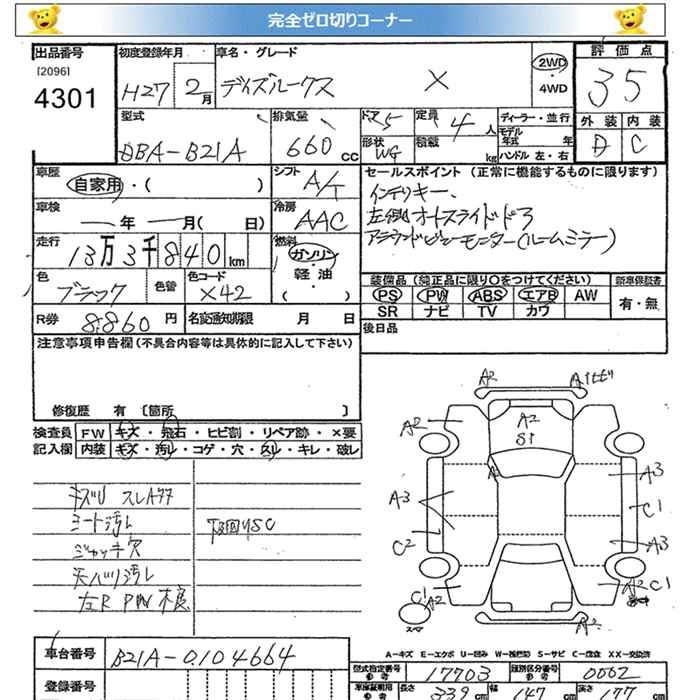 完全ゼロ切りコーナー
出品番号
[2096]
4301
初度登録年月
H27 2月
車名・グレード
デイズルークス X
2WD
・
4WD
評価点
3 5
型式
DBA-B21A
排気量
660 cc
ドア 5
形状 WG
定員 4人
積載 kg
ディーラー・並行
モデル年式 年
ハンドル 左・右
外装 内装
D C
車歴
自家用・( )
シフト
A/T
車検
年 月( 日)
冷房
AAC
走行
13万3千840km
燃料
ガソリン
・
軽油
色
ブラック
色替
色コード
X42
R券 8,860円
名変通知期限 月 日
セールスポイント(正常に機能するものに限ります)
インテリキー、
左側オートスライドドア
アラウンドビューモニター(ルームミラー)
装備品(純正品に限り○をつけてください)
新車保証書
PS PW ABS エアB AW
SR ナビ TV カワ
有・無
後日品
注意事項申告欄(不具合内容等は具体的に記入して下さい)
修復歴 有 〔箇所 〕
検査員
記入欄
FW キズ・飛石・ヒビ割・リペア跡・×要
内装 キズ・汚レ・コゲ・穴・スレ・キレ・破レ
シート汚レ
下回りSC
ジャッキ欠
天バリ汚レ
左R PW
A2
A2
A2
S1
A2
A3
A3
C1
C2
A3
C1
A2
A2 C1
スペア
A2
A-キズ E-エクボ U-凹み W-補修跡 S-サビ C-腐食 XX-交換済
車台番号
B21A-0104664
登録番号
型式指定番号 17703
類別区分番号 0002
車庫証明用参考
長さ 339cm
幅 147cm
高さ 177